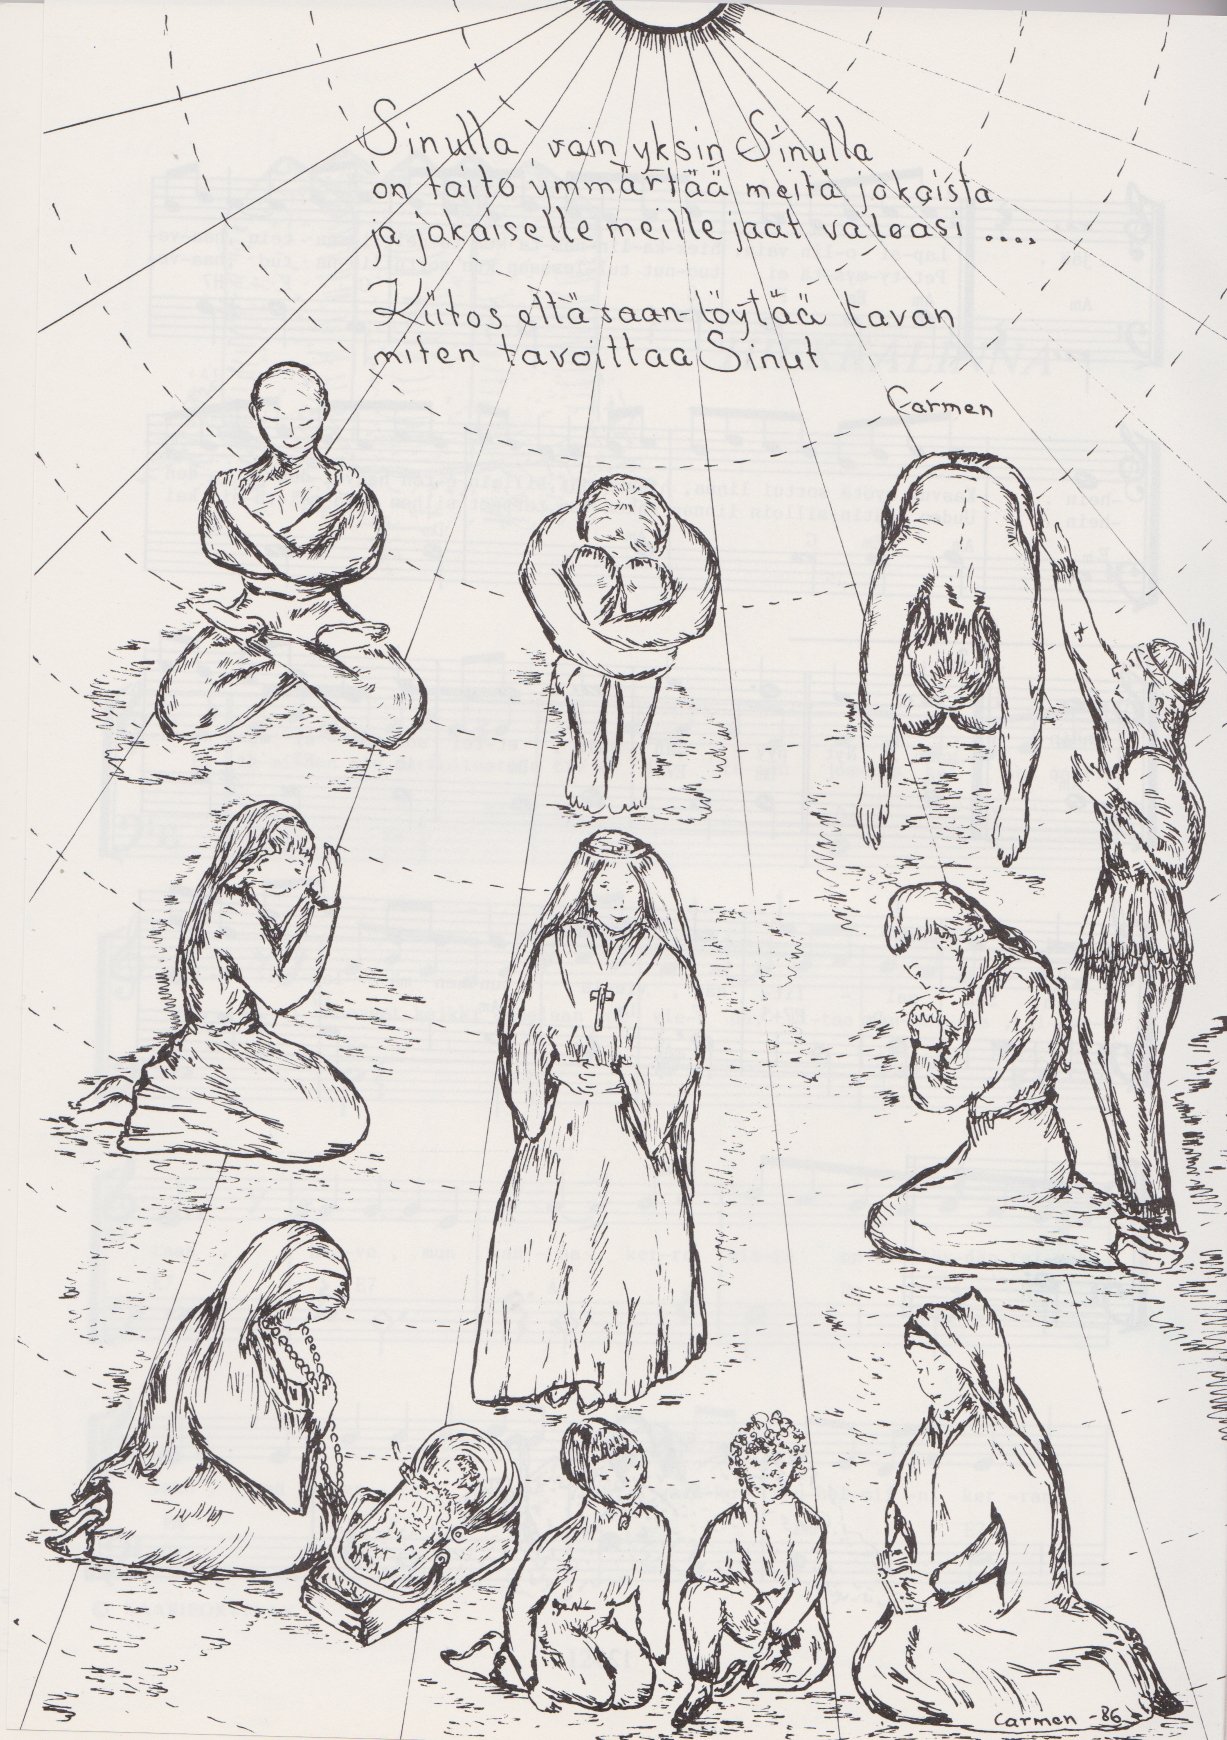 Sinulla, vain yksin Sinulla
on taito ymmärtää meitä jokaista
ja jokaiselle meille jaat valoasi ....
Kiitos että saan löytää tavan
miten tavoittaa Sinut
Carmen
Carmen -86